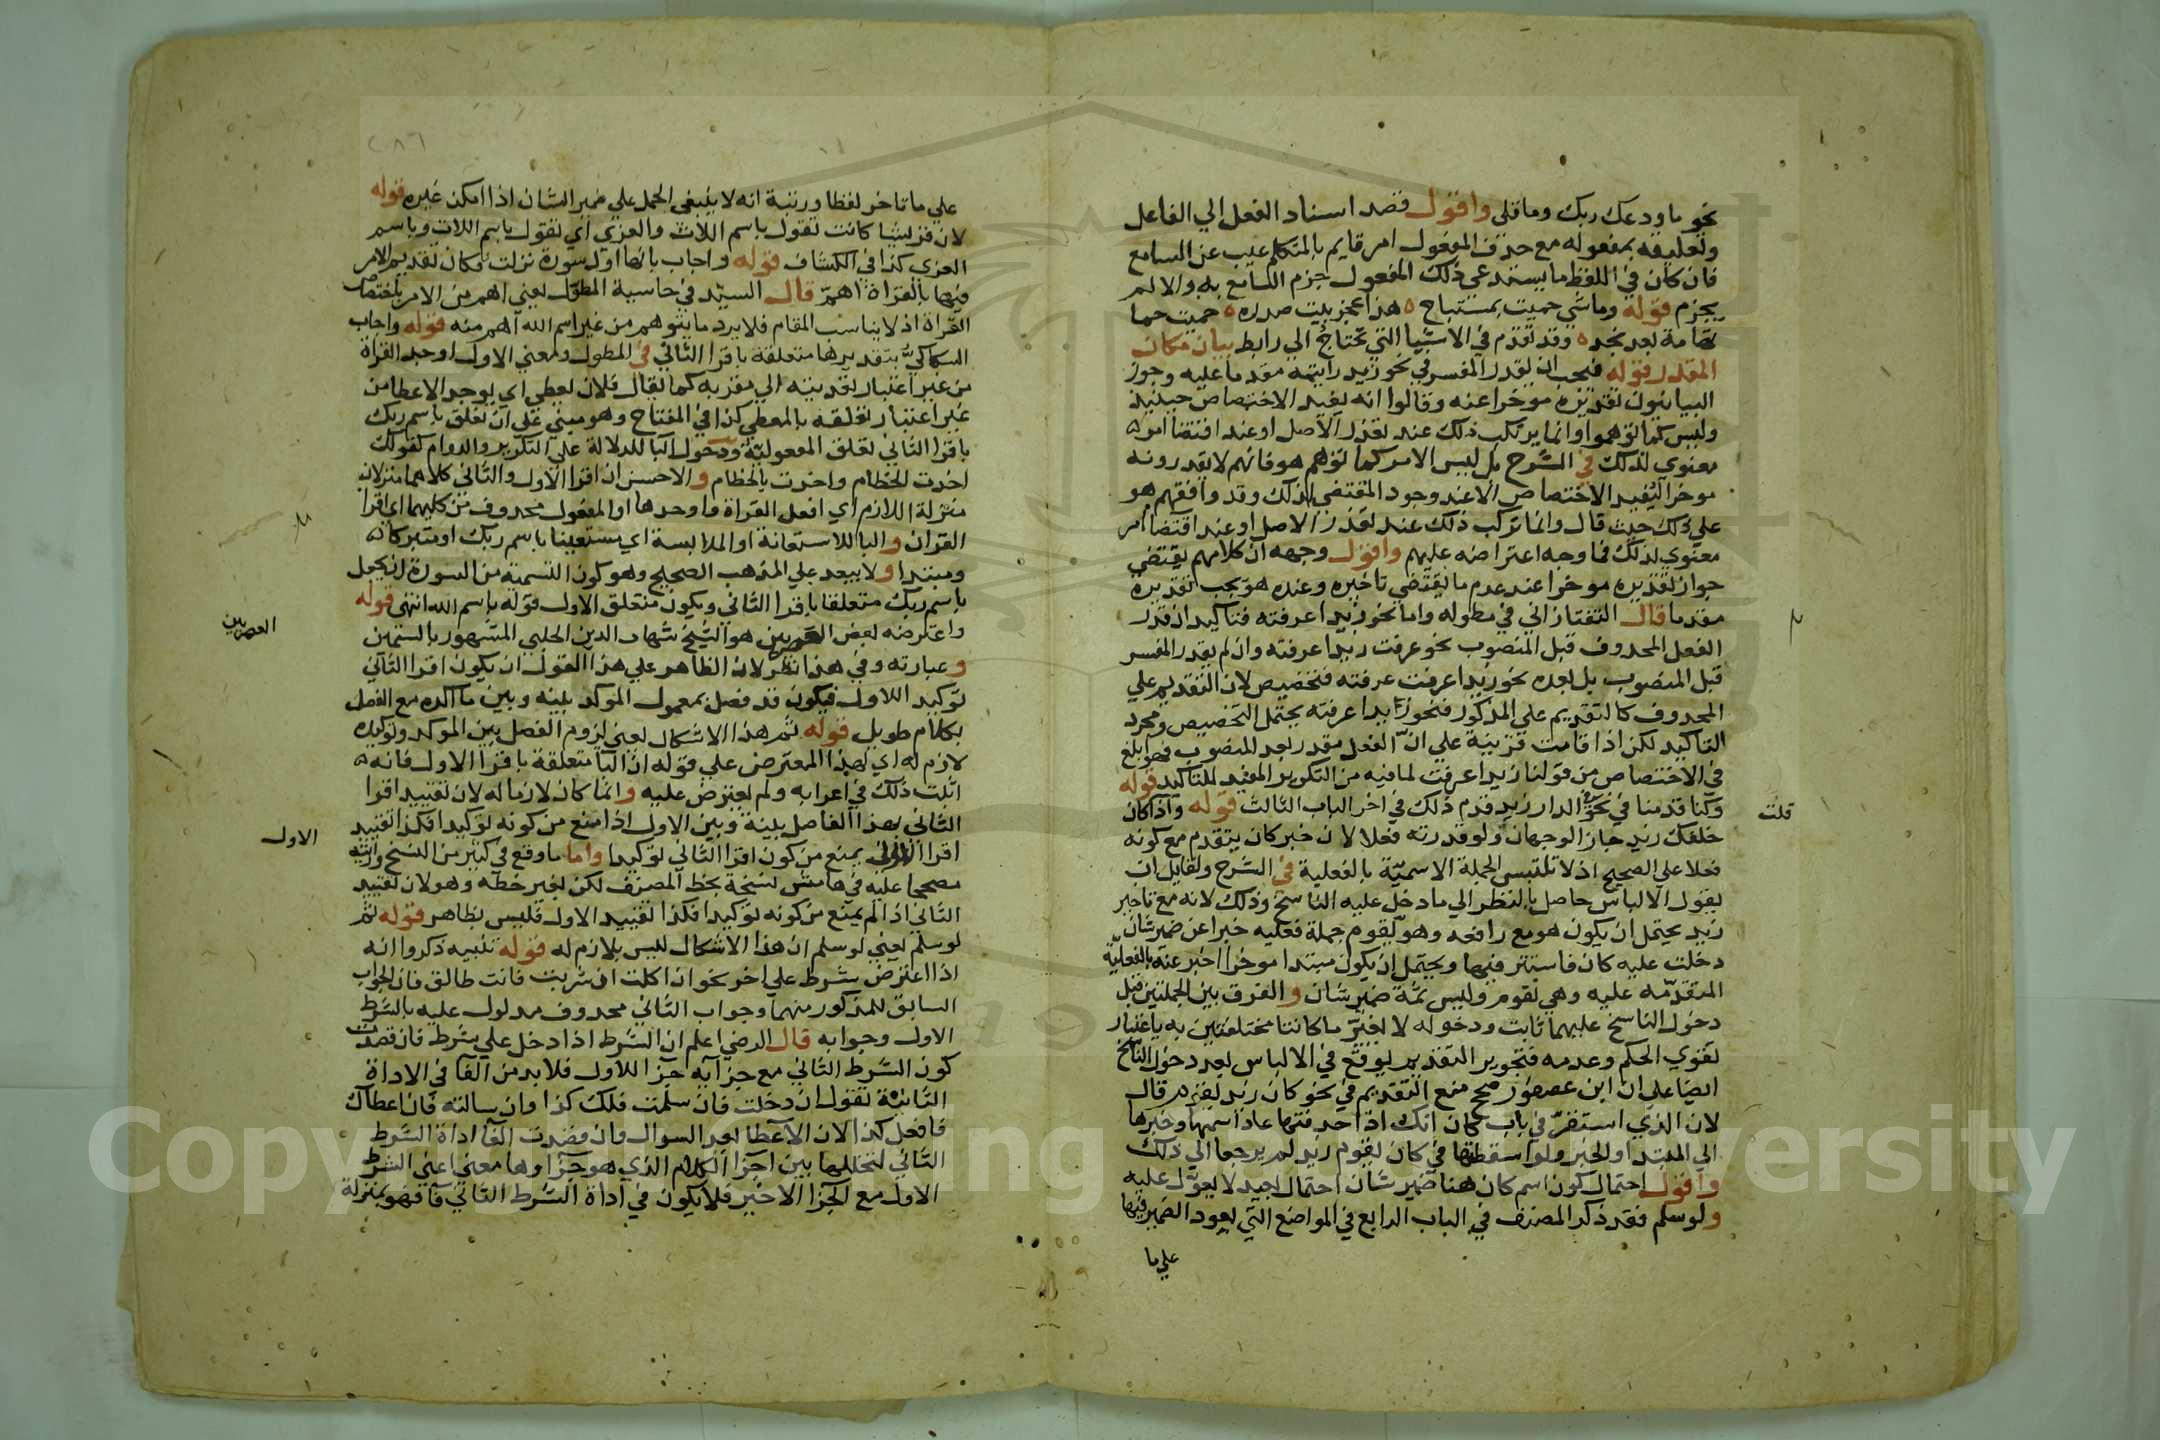 نحو ما ودعك ربك وما قلي واقول قصد اسناد الفعل الي الفاعل
وتعليقه بمفعوله مع حذف المفعول امر قايم بالمتكلم غيب عن السامع
فان كان في اللفظ ما يستدعي ذلك المفعول جزم السامع به والا لم
يجزم قوله وما شي حميت بمستباح ه هذا عجز بيت صدره ه حميت حما
تهامة بعد نجد ه وقد تقدم في الاشيا التي تحتاج الي رابط بيان مكان
المقدر قوله فيجب ان يقدر المفسر في نحو زيد رايته مقدما عليه وجوز
البيانيون تقديره موخرا عنه وقالوا انه يفيد الاختصاص حينيذ
وليس كما توهموا وانما يرتكب ذلك عند تعذر الاصل او عند اقتضا امر ه
معنوي لذلك في الشرح بل ليس الامر كما توهم هو فانهم لا يقدرونه
موخرا ليفيد الاختصاص الا عند وجود المقتضي لذلك وقد وافقهم هو
علي ذلك حيث قال وانما يرتكب ذلك عند تعذر الاصل او عند اقتضا امر
معنوي لذلك فما وجه اعتراضه عليهم واقول وجهه ان كلامهم يقتضي
جواز تقديره موخرا عند عدم ما يقتضي تاخيره وعنده هو يجب تقديره
مقدما قال التفتازاني في مطوله واما نحو زيدا عرفته فتاكيد ان قدر
الفعل المحذوف قبل المنصوب نحو عرفت زيدا عرفته وان لم يقدر المفسر
قبل المنصوب بل بعده نحو زيدا عرفت عرفته فتخصيص لان التقديم علي
المحذوف كالتقديم علي المذكور فنحو زيدا عرفته يحتمل التخصيص ومجرد
التاكيد لكن اذا قامت قرينة علي ان الفعل مقدر بعد المنصوب فهو ابلغ
في الاختصاص من قولنا زيدا عرفت لما فيه من التكرير المفيد للتاكيد قوله
وكنا قدمنا في نحو في الدار زيد قدم ذلك في اخر الباب الثالث قوله واذا كان
خلفك زيد جاز الوجهان ولو قدرته فعلا لان خبر كان يتقدم مع كونه
فعلا علي الصحيح اذ لا تلتبس الجملة الاسمية بالفعلية في الشرح ولقايل ان
يقول الالباس حاصل بالنظر الي ما دخل عليه الناسخ وذلك لانه مع تاخير
زيد يحتمل ان يكون هو مع رافعه وهو يقوم جملة فعليه خبرا عن ضمير شان
دخلت عليه كان فاستتر فيها ويحتمل ان يكون مبتدا موخرا اخبر عنه بالفعلية
المتقدمه عليه وهي يقوم وليس ثمة ضمير شان والفرق بين الجملتين قبل
دخول الناسخ عليهما ثابت ودخوله لا يغير ما كانتا مختلفتين به باعتبار
تقوي الحكم وعدمه فتجويز التقديم يوقع في الالباس بعد دخول الناسخ
ايضا علي ان ابن عصفور صحح منع التقديم في نحو كان زيد يقوم قال
لان الذي استقر في باب كان انك اذا حذفتها عاد اسمها وخبرها
الي المبتدا والخبر ولو اسقطتها في كان يقوم زيد لم يرجعا الي ذلك
واقول احتمال كون اسم كان هنا ضمير شان احتمال بعيد لا يعول عليه
ولو سلم فقد ذكر المصنف في الباب الرابع في المواضع التي يعود الضمير فيها
علي ما
قلت
علي ما تاخر لفظا ورتبة انه لا ينبغي الحمل علي ضمير الشان اذا امكن غيره قوله
لان قريشا كانت تقول باسم اللات والعزي اي تقول باسم اللات وباسم
العزي كذا في الكشاف قوله واجاب بانها اول سورة نزلت فكان تقديم الامر
فيها بالقراة اهم قال السيد في حاشية المطول يعني اهم من الامر باختصاص
القراة اذ لا يناسب المقام فلا يرد ما يتوهم من غير اسم الله اهم منه قوله واجاب
السكاكي بتقديرها متعلقة باقرا الثاني في المطول ومعني الاول اوجد القراة
من غير اعتبار تعديته الي مقروبه كما يقال فلان يعطي اي يوجد الاعطا من
غير اعتبار تعلقه بالمعطي كذا في المفتاح وهو مبني علي ان تعلق باسم ربك
باقرا الثاني تعلق المفعولية ودخول البا للدلالة علي التكرير والدوام كقولك
اخذت الخطام واخذت بالخطام والاحسن ان اقرا الاول والثاني كلاهما منزلان
منزلة اللازم اي افعل القراة واوجدها او المفعول محذوف من كليهما اي اقرا
القران والبا للاستعانة او الملابسة اي مستعينا باسم ربك او متبركا ه
ومبتدا ولا يبعد علي المذهب الصحيح وهو كون التسمية من السورة ان يجعل
باسم ربك متعلقا باقرا الثاني ويكون متعلق الاول قوله باسم الله انتهي قوله
واعترضه بعض العصريين هو الشيخ شهاب الدين الحلبي المشهور بالسمين
وعبارته وفي هذا نظر لان الظاهر علي هذا القول ان يكون اقرا الثاني
توكيد اللاول فيكون قد فصل بمعمول الموكد بينه وبين ما اكده مع الفصل
بكلام طويل قوله ثم هذا الاشكال يعني لزوم الفصل بين الموكد وتوكيده
لازم له اي لهذا المعترض علي قوله ان البا متعلقة باقرا الاول فانه ه
اثبت ذلك في اعرابه ولم يعترض عليه وانما كان لازما له لان تقييد اقرا
الثاني بهذا الفاصل بينه وبين الاول اذا منع من كونه توكيدا فكذا تقييد
اقرا الاول يمنع من كون اقرا الثاني توكيدا واما ما وقع في كثير من النسخ ورايته
مصححا عليه في هامش نسخة بخط المصنف لكن بغير خطه وهو لان تقييد
الثاني اذا لم يمنع من كونه توكيدا فكذا تقييد الاول فليس بظاهر قوله ثم
لو سلم يعني لو سلم ان هذا الاشكال ليس بلازم له قوله تنبيه ذكروا انه
اذا اعترض شرط علي اخر نحو ان اكلت ان شربت فانت طالق فان الجواب
السابق للمذكور منهما وجواب الثاني محذوف مدلول عليه بالشرط
الاول وجوابه قال الرضي اعلم ان الشرط اذا دخل علي شرط فان قصدت
كون الشرط الثاني مع جزايه جزا للاول فلا بد من الفا في الاداة
الثانية تقول ان دخلت فان سلمت فلك كذا وان سالته فان اعطاك
فافعل كذا لان الاعطا بعد السوال وان قصدت الغا اداة الشرط
الثاني لتخللها بين اجزا الكلام الذي هو جزاوها معني اعني الشرط
الاول مع الجزا الاخير فلا يكون في اداة الشرط الثاني فا فهو بمنزلة
العصريين
الاول
Copyright © King Saud University